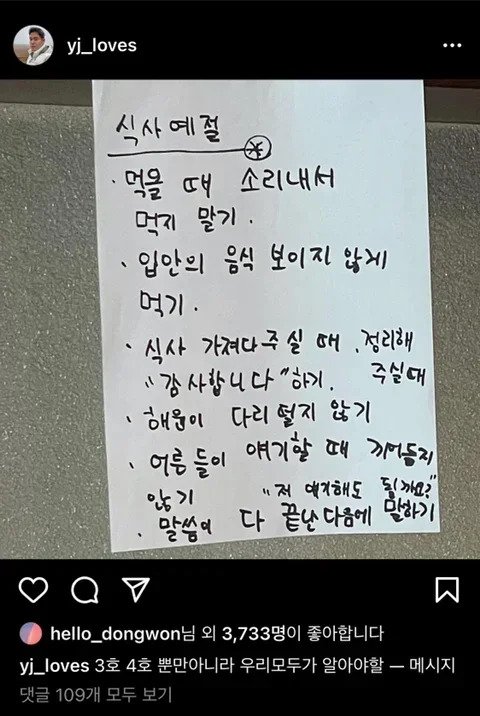 yj_loves
식사예절
· 먹을 때 소리내서
먹지 말기.
· 입안의 음식 보이지 않게
먹기.
· 식사 가져다주실 때, 정리해
"감사합니다"하기. 주실때
· 해원이 다리 떨지 않기
· 어른들이 얘기할 때 끼어들지
않기 "저 얘기해도 될까요?"
· 말씀이 다 끝난다음에 말하기
hello_dongwon님 외 3,733명이 좋아합니다
yj_loves 3호 4호 뿐만아니라 우리모두가 알아야할 — 메시지
댓글 109개 모두 보기